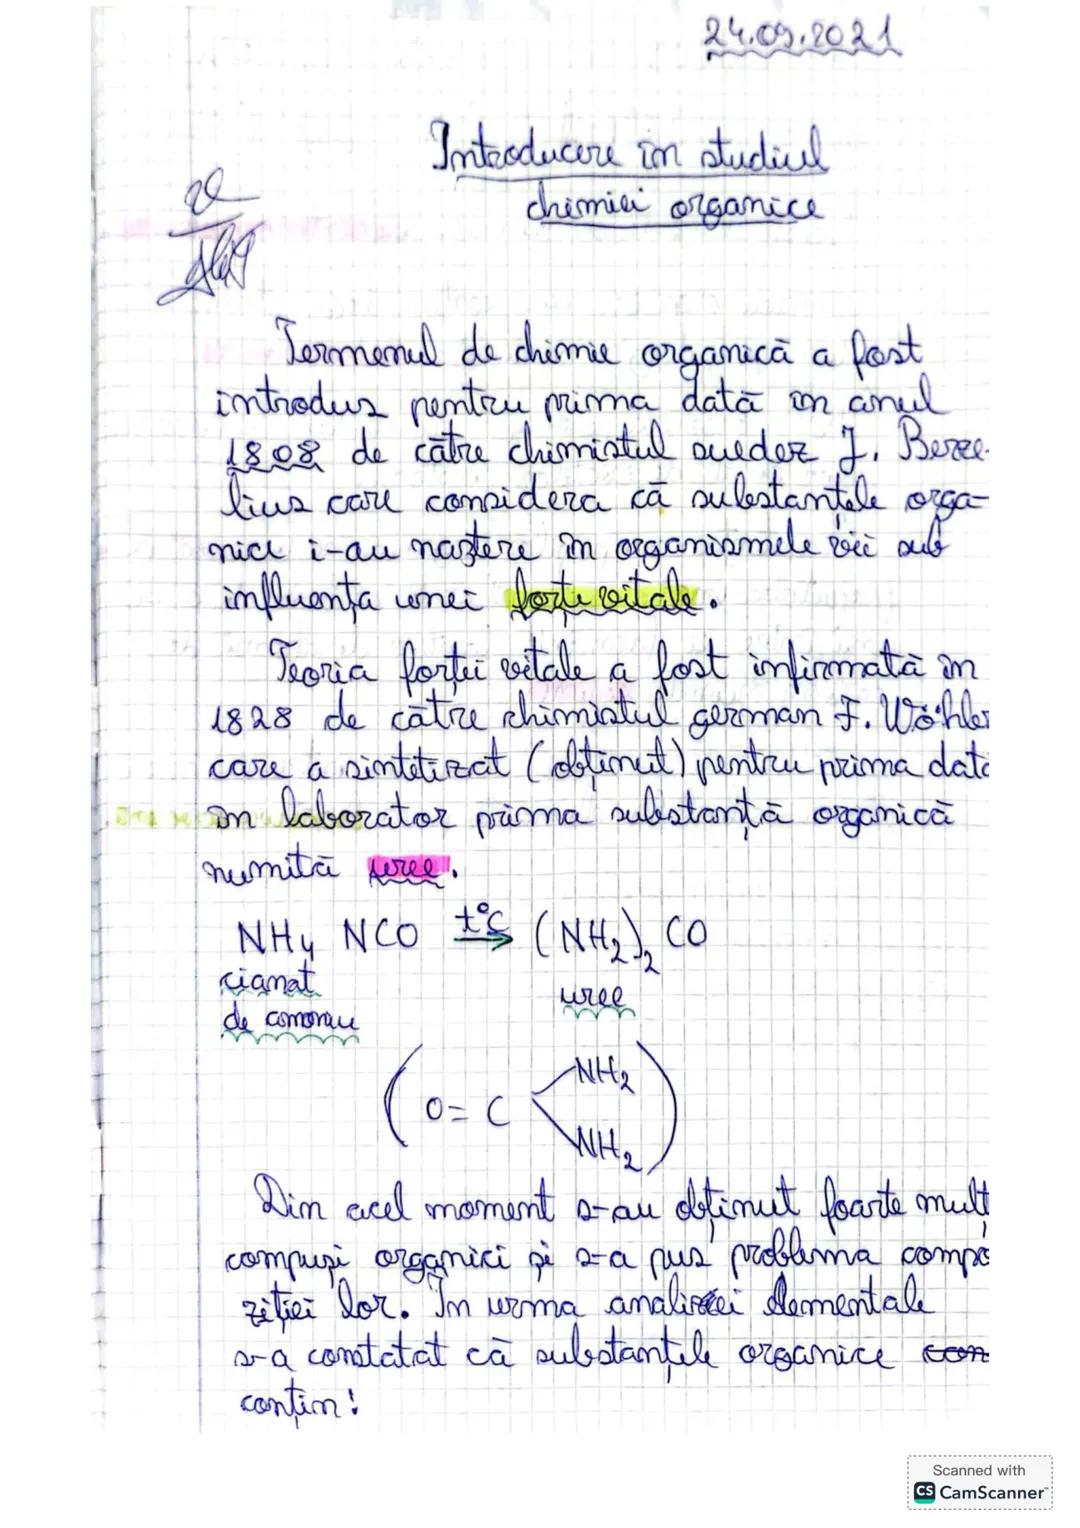 24.09.2021
Introducere în studiul
chimiei organice
Termenul de chimie organică a fost
introdus pentru prima dată în anul
1808 de către chimistul suedez J. Berze-
lius care considera că substanțele orga-
nice i-au naștere în organismele vii sub
influența unei forțe vitale.
Teoria forței vitale a fost infirmată în
1828 de către chimistul german F. Wöhler
care a sintetizat (obținut) pentru prima dată
în laborator prima substanță organică
numită uree.
NH4 NCO t°C → (NH2)2 CO
cianat uree
de amoniu
(O=C NH2
NH2)
Din acel moment s-au obținut foarte mult
compuși organici și s-a pus problema compo
ziției lor. În urma analizei elementale
s-a constatat că substanțele organice con
conțin:
Scanned with
CS CamScanner